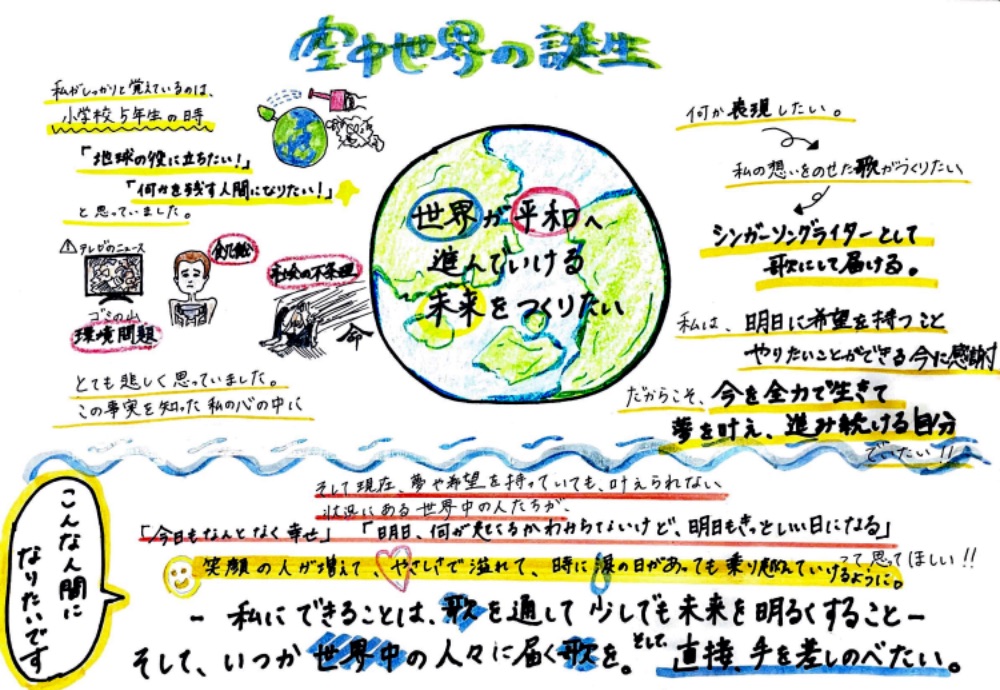 空中世界の誕生
私がしっかりと覚えているのは、
小学校5年生の時
「地球の役に立ちたい!」
「何かを残す人間になりたい!」
と思っていました。
テレビのニュース
ゴミの山
環境問題
飢餓
社会の不条理
命
とても悲しく思っていました。
この事実を知った私の心の中に
世界が平和へ
進んでいける
未来をつくりたい
何か表現したい。
私の想いをのせた歌がつくりたい
シンガーソングライターとして
歌にして届ける。
私は、明日に希望を持つこと
やりたいことができる今に感謝
だからこそ、今を全力で生きて
夢を叶え、進み続ける自分
でいたい!!
こんな人間に
なりたいです
そして現在、夢や希望を持っていても、叶えられない
状況にある世界中の人たちが、
「今日もなんとなく幸せ」「明日、何が起こるかわからないけど、明日もきっといい日になる」
って思ってほしい!!
笑顔の人が増えて、やさしさで溢れて、時に涙の日があっても乗り越えていけるように。
- 私にできることは、歌を通して少しでも未来を明るくすること-
そして、いつか世界中の人々に届く歌を。そして、直接、手を差しのべたい。